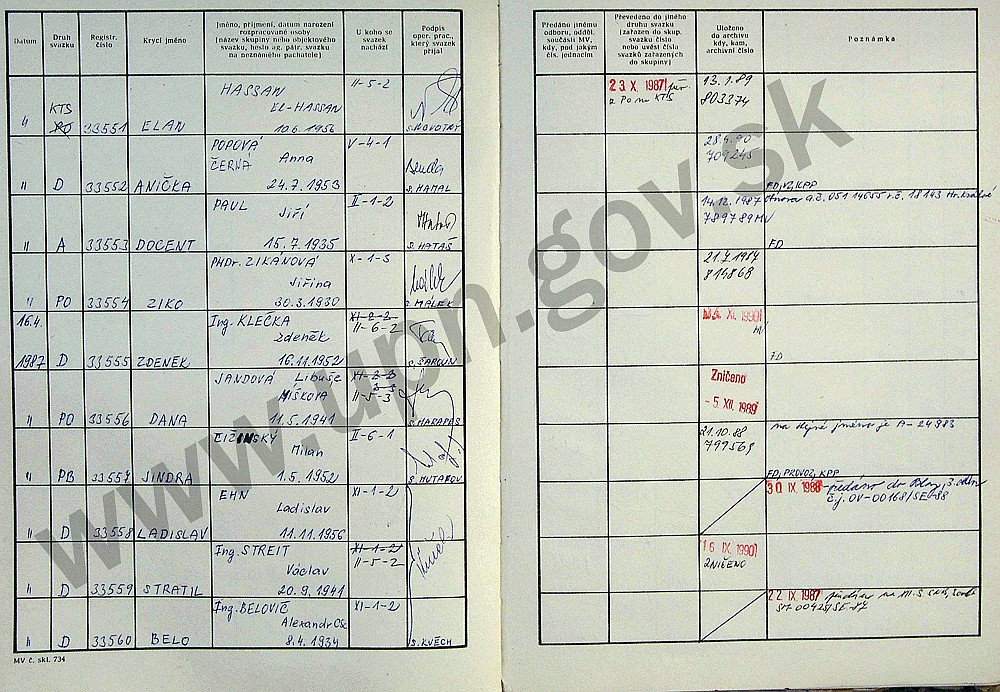 Datum
Druh svazku
Registr. číslo
Krycí jméno
Jméno, příjmení, datum narození rozpracované osoby
(název skupiny nebo objektového svazku, heslo ag. pátr. svazku na neznámého pachatele)
U koho se svazek nachází
Podpis oper. prac., který svazek přijal
Předáno jinému odboru, odděl. součásti MV, kdy, pod jakým čís. jednacím
Převedeno do jiného druhu svazku (zařazen do skup. svazku číslo nebo uvést čísla svazků zařazených do skupiny)
Uloženo do archivu kdy, kam, archivní číslo
Poznámka
HASSAN
EL-HASSAN
10.6. 1956
II-5-2
KTS
PO
" 33551 ELAN
S. NOVOTNÝ
23. X. 1987
z PO na KTS
13.1.89
803374
POPOVÁ
ČERNÁ Anna
24.7. 1953
V-4-1
" D 33552 ANIČKA
S. HAMAL
28.4.90
709245
FD, VZ, KPP
PAUL
Jiří
15.7.1935
II-1-2
" A 33553 DOCENT
S. HATAŠ
14.12.1987
789789 MV
a.č. 051 14655 r.č. 18143 Hr. Králové
FD
PHDr. ZIKANOVÁ
Jiřina
30.3.1930
X-1-3
" PO 33554 ZIKO
S. MÁLEK
21.7.1987
814868
16.4.
1987 D 33555 ZDENĚK
Ing. KLEČKA
Zdeněk
16.11.1952
XI-2-2
II-6-2
XI. 1990
FD
JANDOVÁ Libuše
MÍŠKOVÁ
11.5.1941
" PO 33556 DANA
II-5-3
Zničeno
-5. XII. 1989
Milan
1.5.1952
II-6-1
" PB 33557 JINDRA
S. MUTAROV
21.10.88
799569
na krycí jméno je A-24983
FD, PROVOZ, KPP
EHN
Ladislav
11.11.1956
XI-1-2
" D 33558 LADISLAV
30. IX. 1988
č.j. OV-00168/SE-88
Ing. STREIT
Václav
20.9.1941
XI-1-2
II-5-2
" D 33559 STRATIL
16. IX. 1990
ZNIČENO
Ing. BELOVIČ
Alexandr CSc
8.4.1934
XI-1-2
" D 33560 BELO
S. KVĚCH
22. IX. 1987
MV č. skl. 734
www.upn.gov.sk